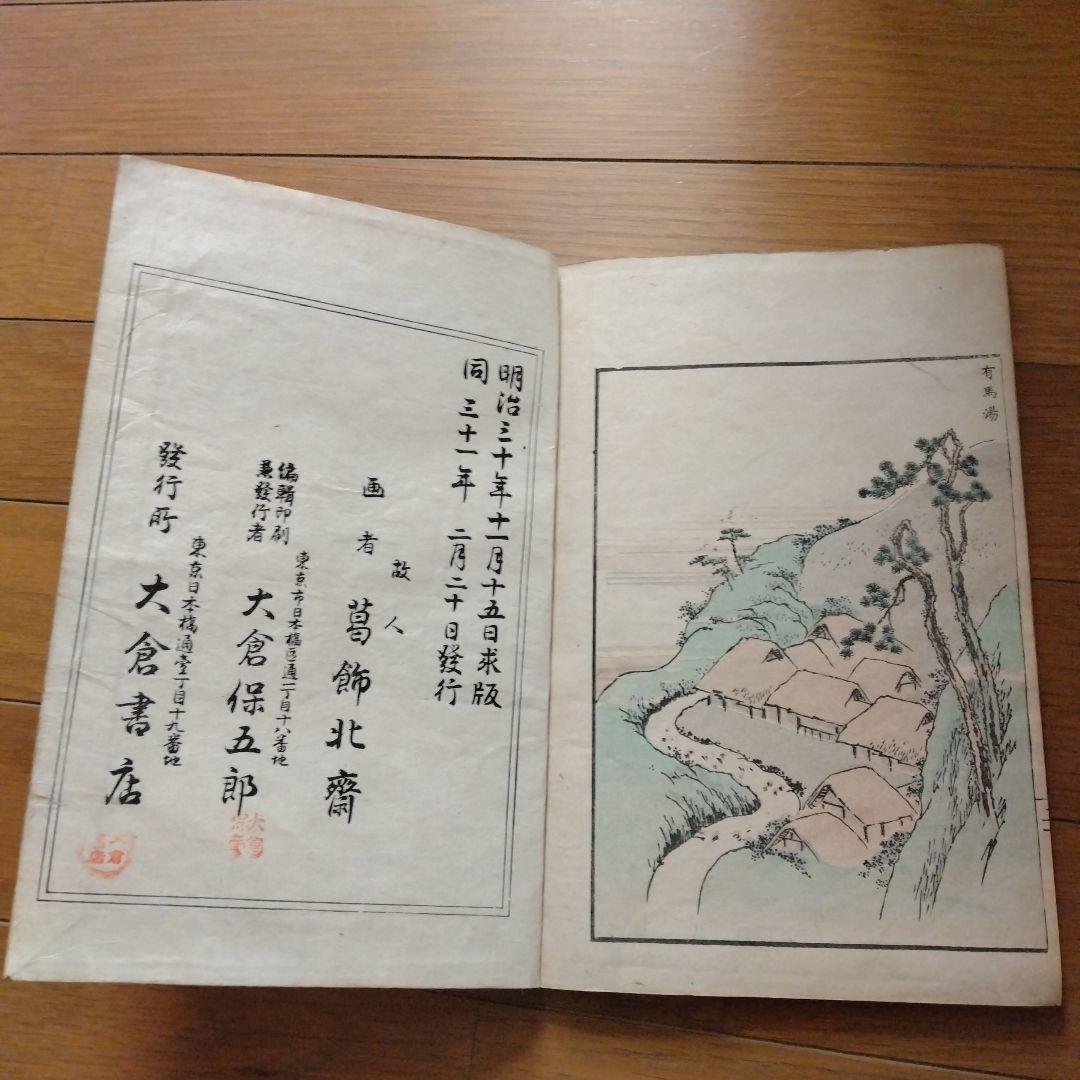 有馬湯
明治三十年十一月十五日求版
同三十一年二月二十日發行
故人
画者 葛飾北齋
東京市日本橋區通一丁目十八番地
編輯印刷
兼發行者
大倉保五郎
東京日本橋通壹丁目十九番地
發行所 大倉書店